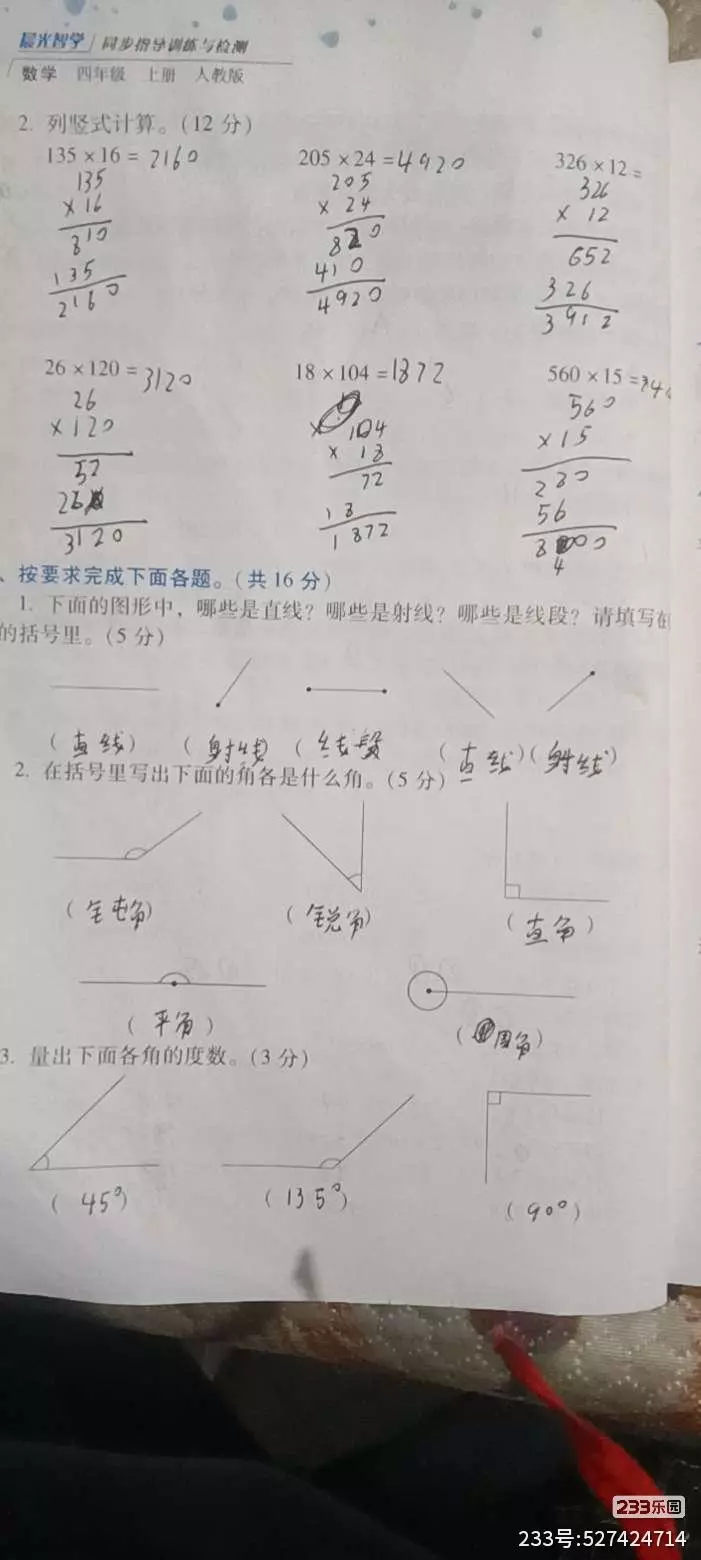 晨光智学 同步指导训练与检测
数学 四年级 上册 人教版
2. 列竖式计算。(12 分)
135 × 16 = 2160 205 × 24 = 4920 326 × 12 =
135 205 326
× 16 × 24 × 12
810 820 652
135 410 326
2160 4920 3912
26 × 120 = 3120 18 × 104 = 1872 560 × 15 = 840
26 104 560
× 120 × 18 × 15
52 72 280
26 18 56
3120 1872 8400
4
、按要求完成下面各题。(共 16 分)
1. 下面的图形中，哪些是直线？哪些是射线？哪些是线段？请填写在
的括号里。(5 分)
(直线) (射线) (线段) (直线) (射线)
2. 在括号里写出下面的角各是什么角。(5 分)
(钝角) (锐角) (直角)
(平角) (周角)
3. 量出下面各角的度数。(3 分)
(45°) (135°) (90°)
233乐园
233号:527424714